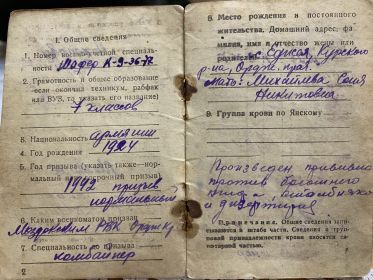 I. Общие сведения
1. Номер военно-учетной специаль-
ности Шофер К-9-3672
2. Грамотность и общее образование
(если окончил техникум, рабфак
или ВУЗ, то указать его название)
7 классов
3. Национальность армянин
4. Год рождения 1924
5. Год призыва (указать также—нор-
мальный или досрочный призыв)
1942 призыв
нормальный
6. Каким военкоматом призван
Моздокским РВК Орджкр
7. Специальность до призыва
комбайнер
2
8. Место рождения и постоянного
жительства. Домашний адрес, фа-
милия, имя и отчество жены или
родителей с. Эдисия, Курского
р-на, Ордж. края
мать:
Никитовна
9. Группа крови по Янскому
Произведен прививка
против брюшного
тифа, столбняка
и дизентерия
Примечание. Общие сведения запи-
сываются в штабе части. Сведения о груп-
повой принадлежности крови вносятся са-
нитарной частью.